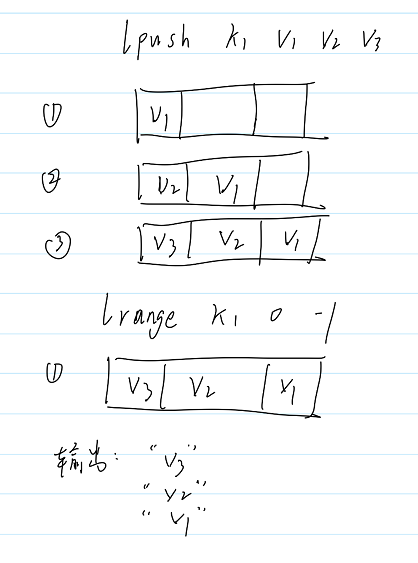 lpush k1 V1 V2 V3
① V1
② V2 V1
③ V3 V2 V1
lrange k1 0 -1
① V3 V2 V1
输出: "V3"
"V2"
"V1"